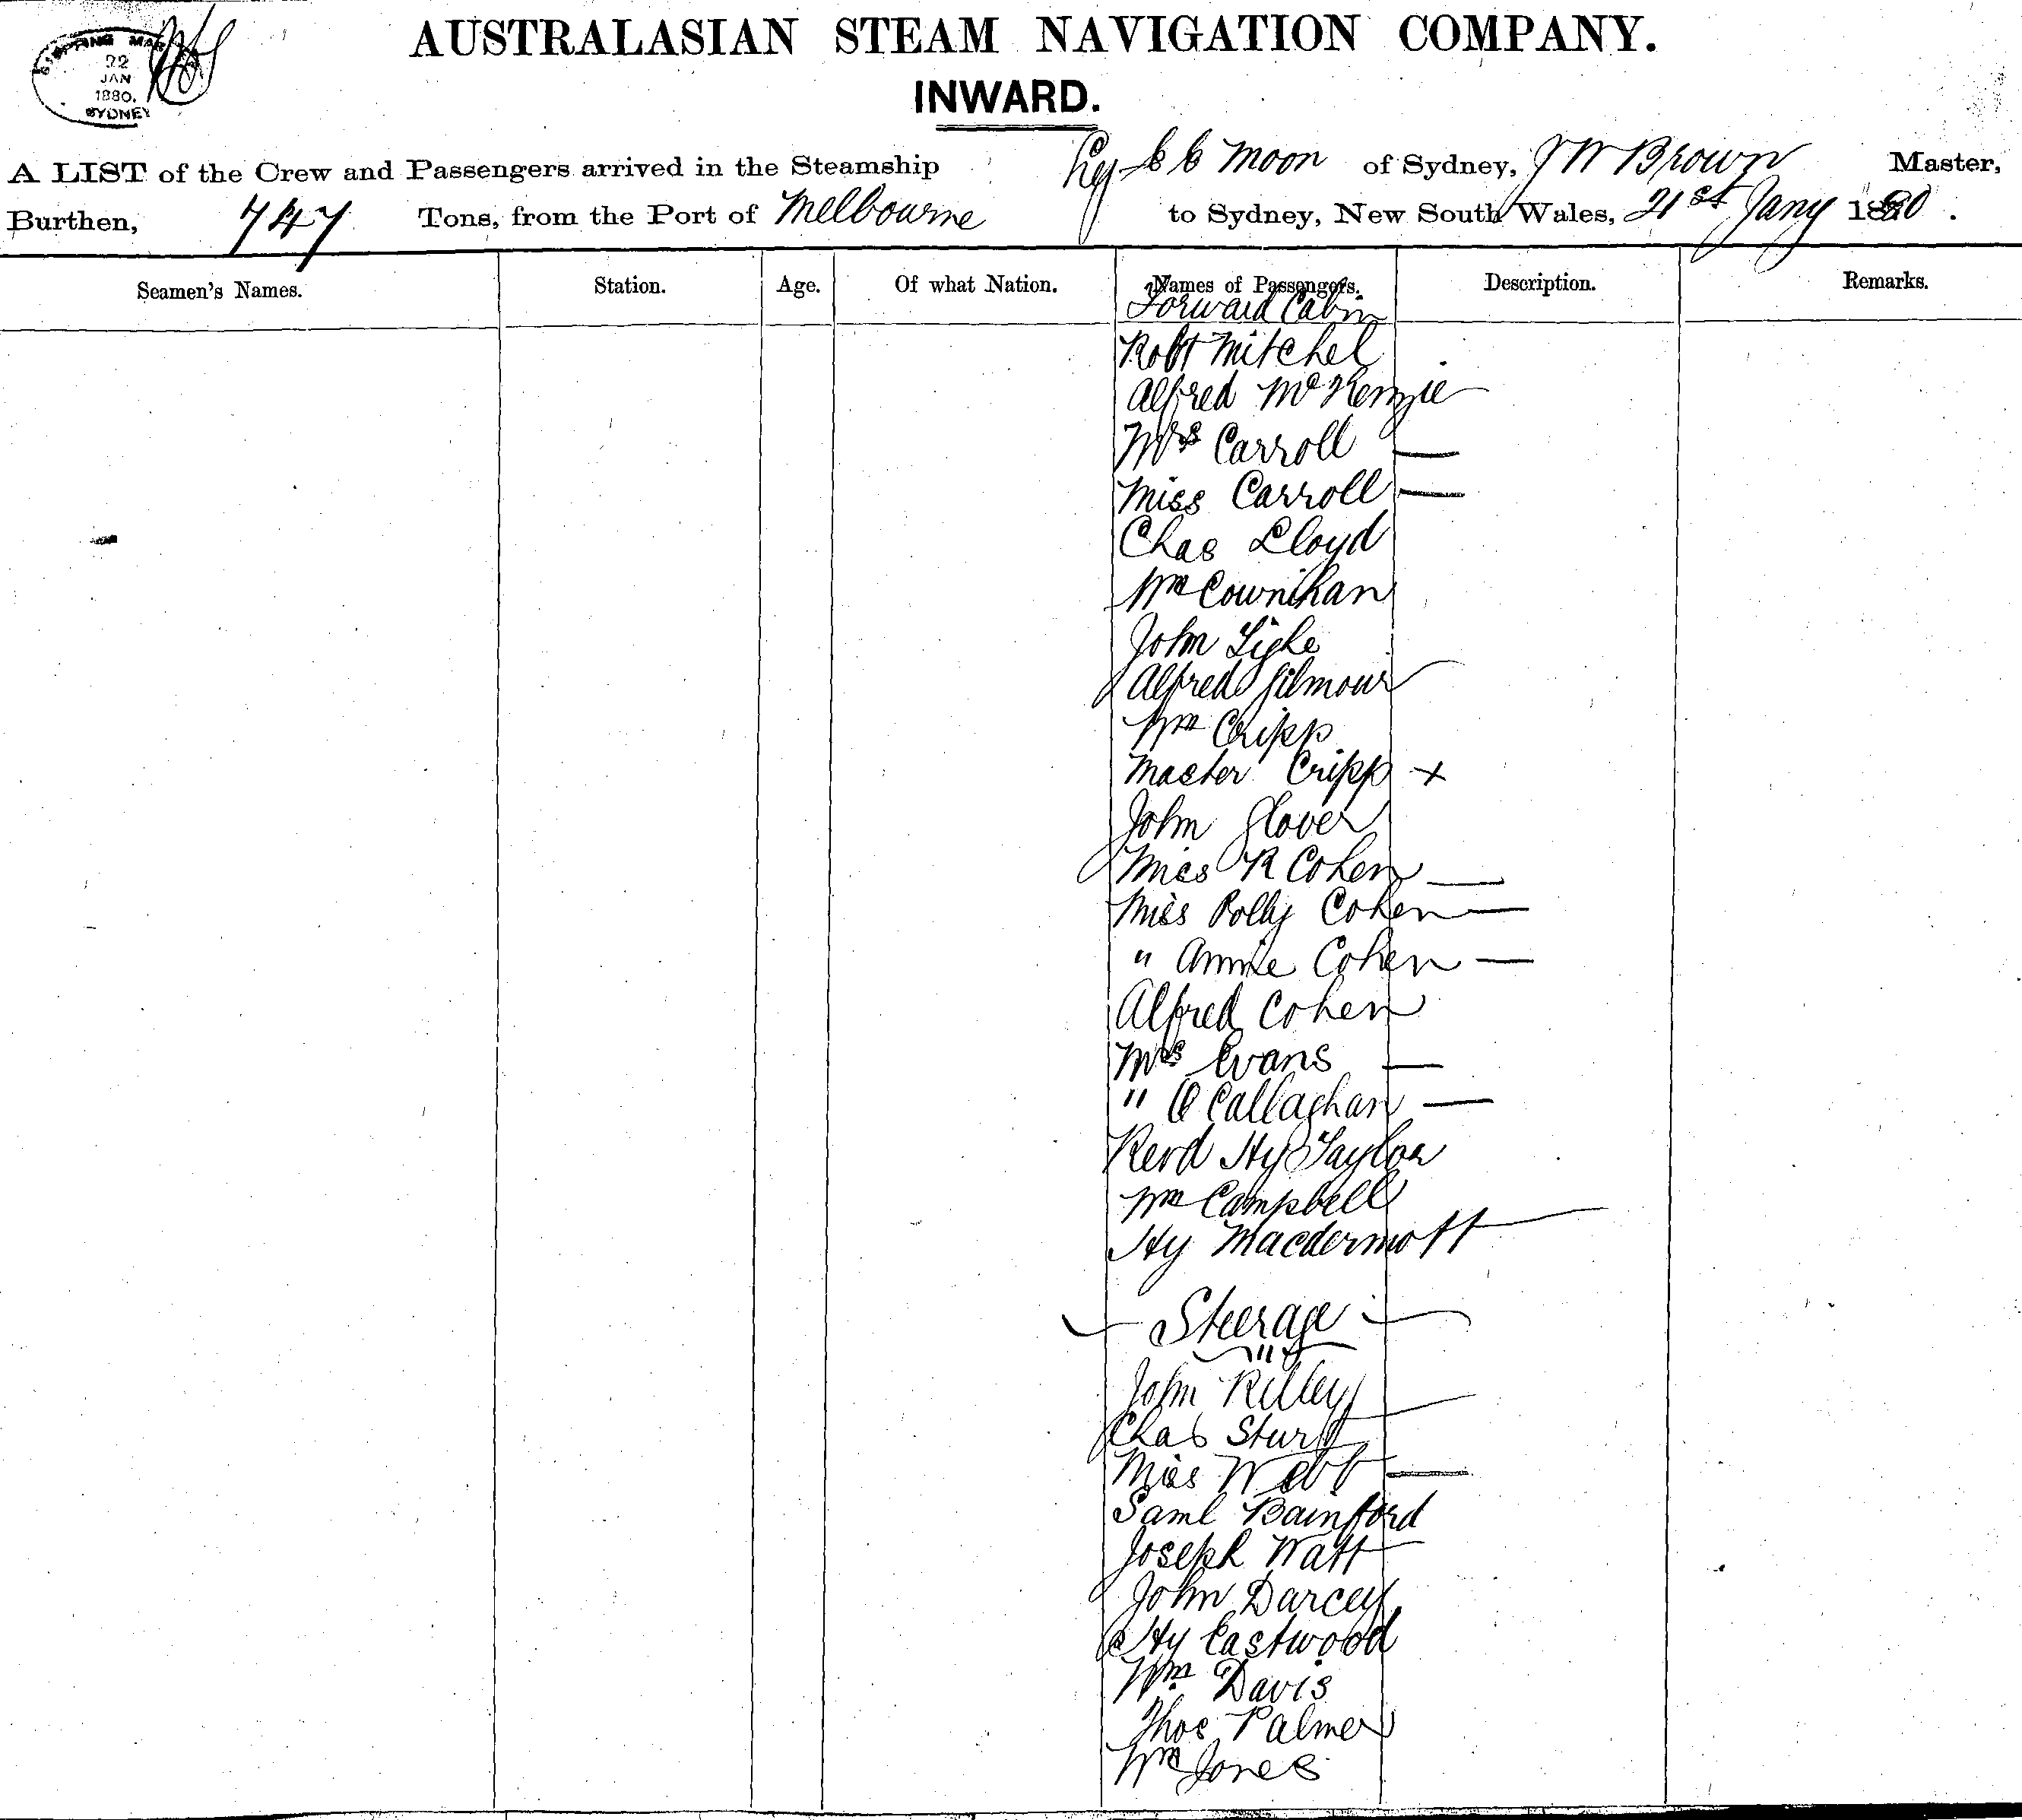 SHIPPING MAS
22
JAN
1880.
SYDNEY
AUSTRALASIAN STEAM NAVIGATION COMPANY.
INWARD.
A LIST of the Crew and Passengers arrived in the Steamship Ly ee Moon of Sydney, J W Brown Master,
Burthen, 747 Tons, from the Port of Melbourne to Sydney, New South Wales, 21st Jany 1880.
Seamen's Names. Station. Age. Of what Nation. Names of Passengers. Description. Remarks.
Forward Cabin
Robt Mitchel
Alfred McKenzie
Mrs Carroll —
Miss Carroll —
Chas Lloyd
Wm Counihan
John
Alfred Gilmour
Wm Cripp
Master Cripp +
John Glover
Miss R Cohen —
Miss Polly Cohen —
" Annie Cohen —
Alfred Cohen
Mrs Evans —
" O Callaghan —
Revd Hy Taylor
Wm Campbell
Hy Macdermott
Steerage
John Rilley
Chas Sturt
Miss Webb —
Saml Bamford
Joseph Watt
John Darcey
Hy Eastwood
Wm Davis
Thos Palmer
Wm Jones